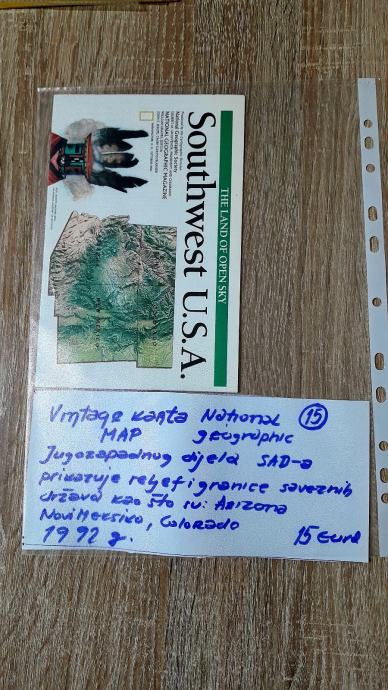 THE LAND OF OPEN SKY
Southwest U.S.A.
National Geographic Society
NATIONAL GEOGRAPHIC MAGAZINE
Vintage karta National
15
MAP geographic
Jugozapadnog dijela SAD-a
prikazuje reljef i granice saveznih
država kao što su: Arizona
Novi Meksiko, Colorado
1992 g.
15 Eura